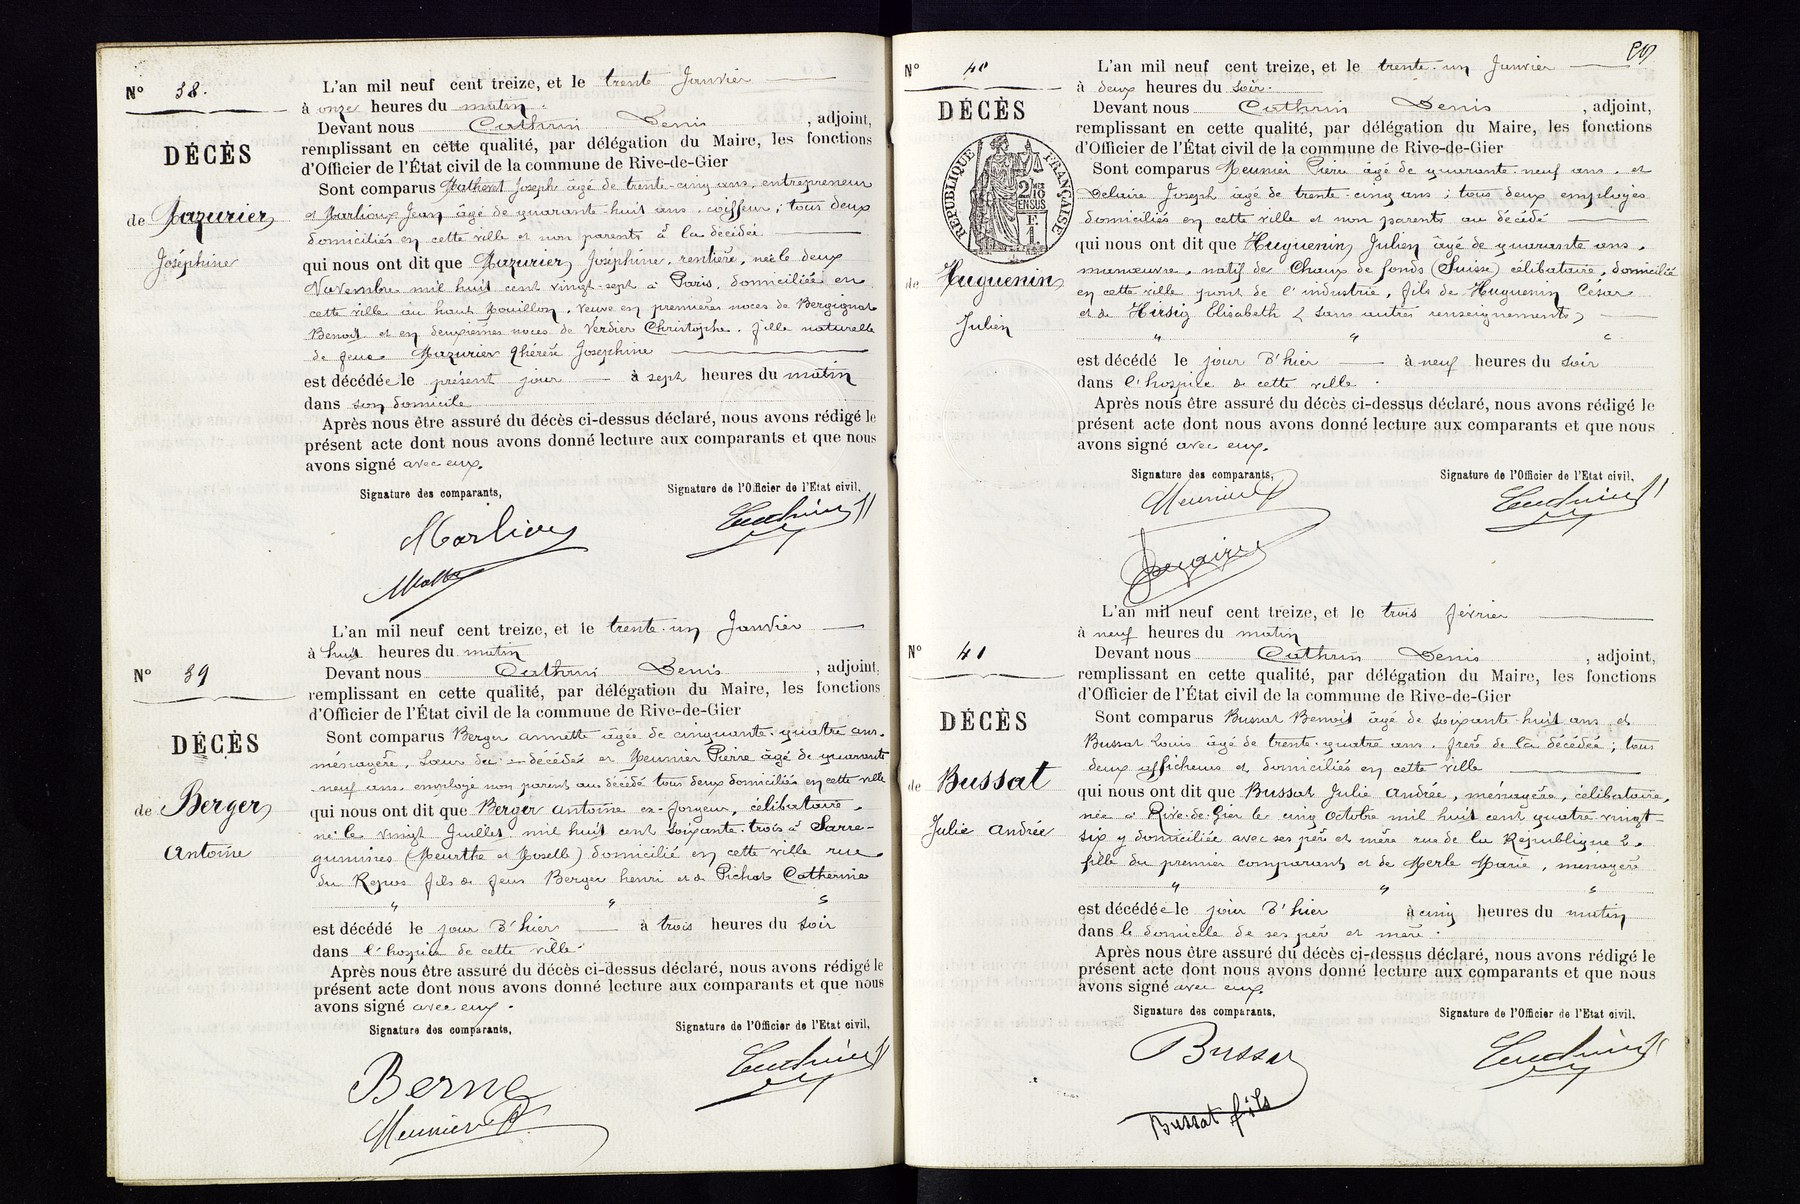 N° 38.
DÉCÈS
de Mazurier
Joséphine
L'an mil neuf cent treize, et le trente Janvier
à onze heures du matin.
Devant nous Cuthrin Denis, adjoint,
remplissant en cette qualité, par délégation du Maire, les fonctions
d'Officier de l'État civil de la commune de Rive-de-Gier
Sont comparus Joseph âgé de trente-cinq ans, entrepreneur
et Marlioux Jean âgé de quarante-huit ans, coiffeur; tous deux
domiciliés en cette ville et non parents à la décédée
qui nous ont dit que Mazurier, Joséphine, rentière, née le deux
Novembre mil huit cent vingt-sept à Paris, domiciliée en
cette ville au haut Bouillon, veuve en premières noces de Bergignat
Benoit et en deuxièmes noces de Verdier Christophe, fille naturelle
de feue Mazurier Thérèse Joséphine
est décédée le présent jour à sept heures du matin
dans son domicile
Après nous être assuré du décès ci-dessus déclaré, nous avons rédigé le
présent acte dont nous avons donné lecture aux comparants et que nous
avons signé avec eux.
Signature des comparants, Signature de l'Officier de l'Etat civil,
Marlioux Cuthrin
N° 39
DÉCÈS
de Berger
Antoine
L'an mil neuf cent treize, et le trente-un Janvier
à huit heures du matin
Devant nous Cuthrin Denis, adjoint,
remplissant en cette qualité, par délégation du Maire, les fonctions
d'Officier de l'État civil de la commune de Rive-de-Gier
Sont comparus Berger Annette âgée de cinquante-quatre ans,
ménagère, sœur du décédé et Meunier Pierre âgé de quarante
neuf ans, employé non parent au décédé tous deux domiciliés en cette ville
qui nous ont dit que Berger Antoine ex-forgeur, célibataire,
né le vingt Juillet mil huit cent soixante-trois à Sarre-
gumines (Meurthe et Moselle) domicilié en cette ville rue
du Repos fils de feus Berger henri et de Pichat Catherine
" " "
est décédé le jour d'hier à trois heures du soir
dans l'hospice de cette ville.
Après nous être assuré du décès ci-dessus déclaré, nous avons rédigé le
présent acte dont nous avons donné lecture aux comparants et que nous
avons signé avec eux.
Signature des comparants, Signature de l'Officier de l'Etat civil,
Berne Cuthrin
Meunier P.
N° 40
DÉCÈS
RÉPUBLIQUE FRANÇAISE
de Huguenin
Julien
L'an mil neuf cent treize, et le trente-un Janvier
à deux heures du soir.
Devant nous Cuthrin Denis, adjoint,
remplissant en cette qualité, par délégation du Maire, les fonctions
d'Officier de l'État civil de la commune de Rive-de-Gier
Sont comparus Meunier Pierre âgé de quarante-neuf ans, et
Joseph âgé de trente-cinq ans; tous deux employés
domiciliés en cette ville et non parents au décédé
qui nous ont dit que Huguenin Julien âgé de quarante ans,
manœuvre, natif de Chaux de fonds (Suisse) célibataire, domicilié
en cette ville pont de l'industrie, fils de Huguenin César
et de Hirsig Elisabeth (sans autres renseignements)
" " "
est décédé le jour d'hier à neuf heures du soir
dans l'hospice de cette ville.
Après nous être assuré du décès ci-dessus déclaré, nous avons rédigé le
présent acte dont nous avons donné lecture aux comparants et que nous
avons signé avec eux.
Signature des comparants, Signature de l'Officier de l'Etat civil,
Meunier P Cuthrin
N° 41
DÉCÈS
de Bussat
Julie Andrée
L'an mil neuf cent treize, et le trois février
à neuf heures du matin
Devant nous Cuthrin Denis, adjoint,
remplissant en cette qualité, par délégation du Maire, les fonctions
d'Officier de l'État civil de la commune de Rive-de-Gier
Sont comparus Bussat Benoit âgé de soixante-huit ans et
Bussat Louis âgé de trente-quatre ans, frère de la décédée; tous
deux afficheurs et domiciliés en cette ville
qui nous ont dit que Bussat Julie Andrée, ménagère, célibataire,
née à Rive-de-Gier le cinq Octobre mil huit cent quatre-vingt-
six y domiciliée avec ses père et mère rue de la République 2,
fille du premier comparant et de Merle Marie, ménagère
" " "
est décédée le jour d'hier à cinq heures du matin
dans le domicile de ses père et mère.
Après nous être assuré du décès ci-dessus déclaré, nous avons rédigé le
présent acte dont nous avons donné lecture aux comparants et que nous
avons signé avec eux.
Signature des comparants, Signature de l'Officier de l'Etat civil,
Bussat Cuthrin
Bussat fils